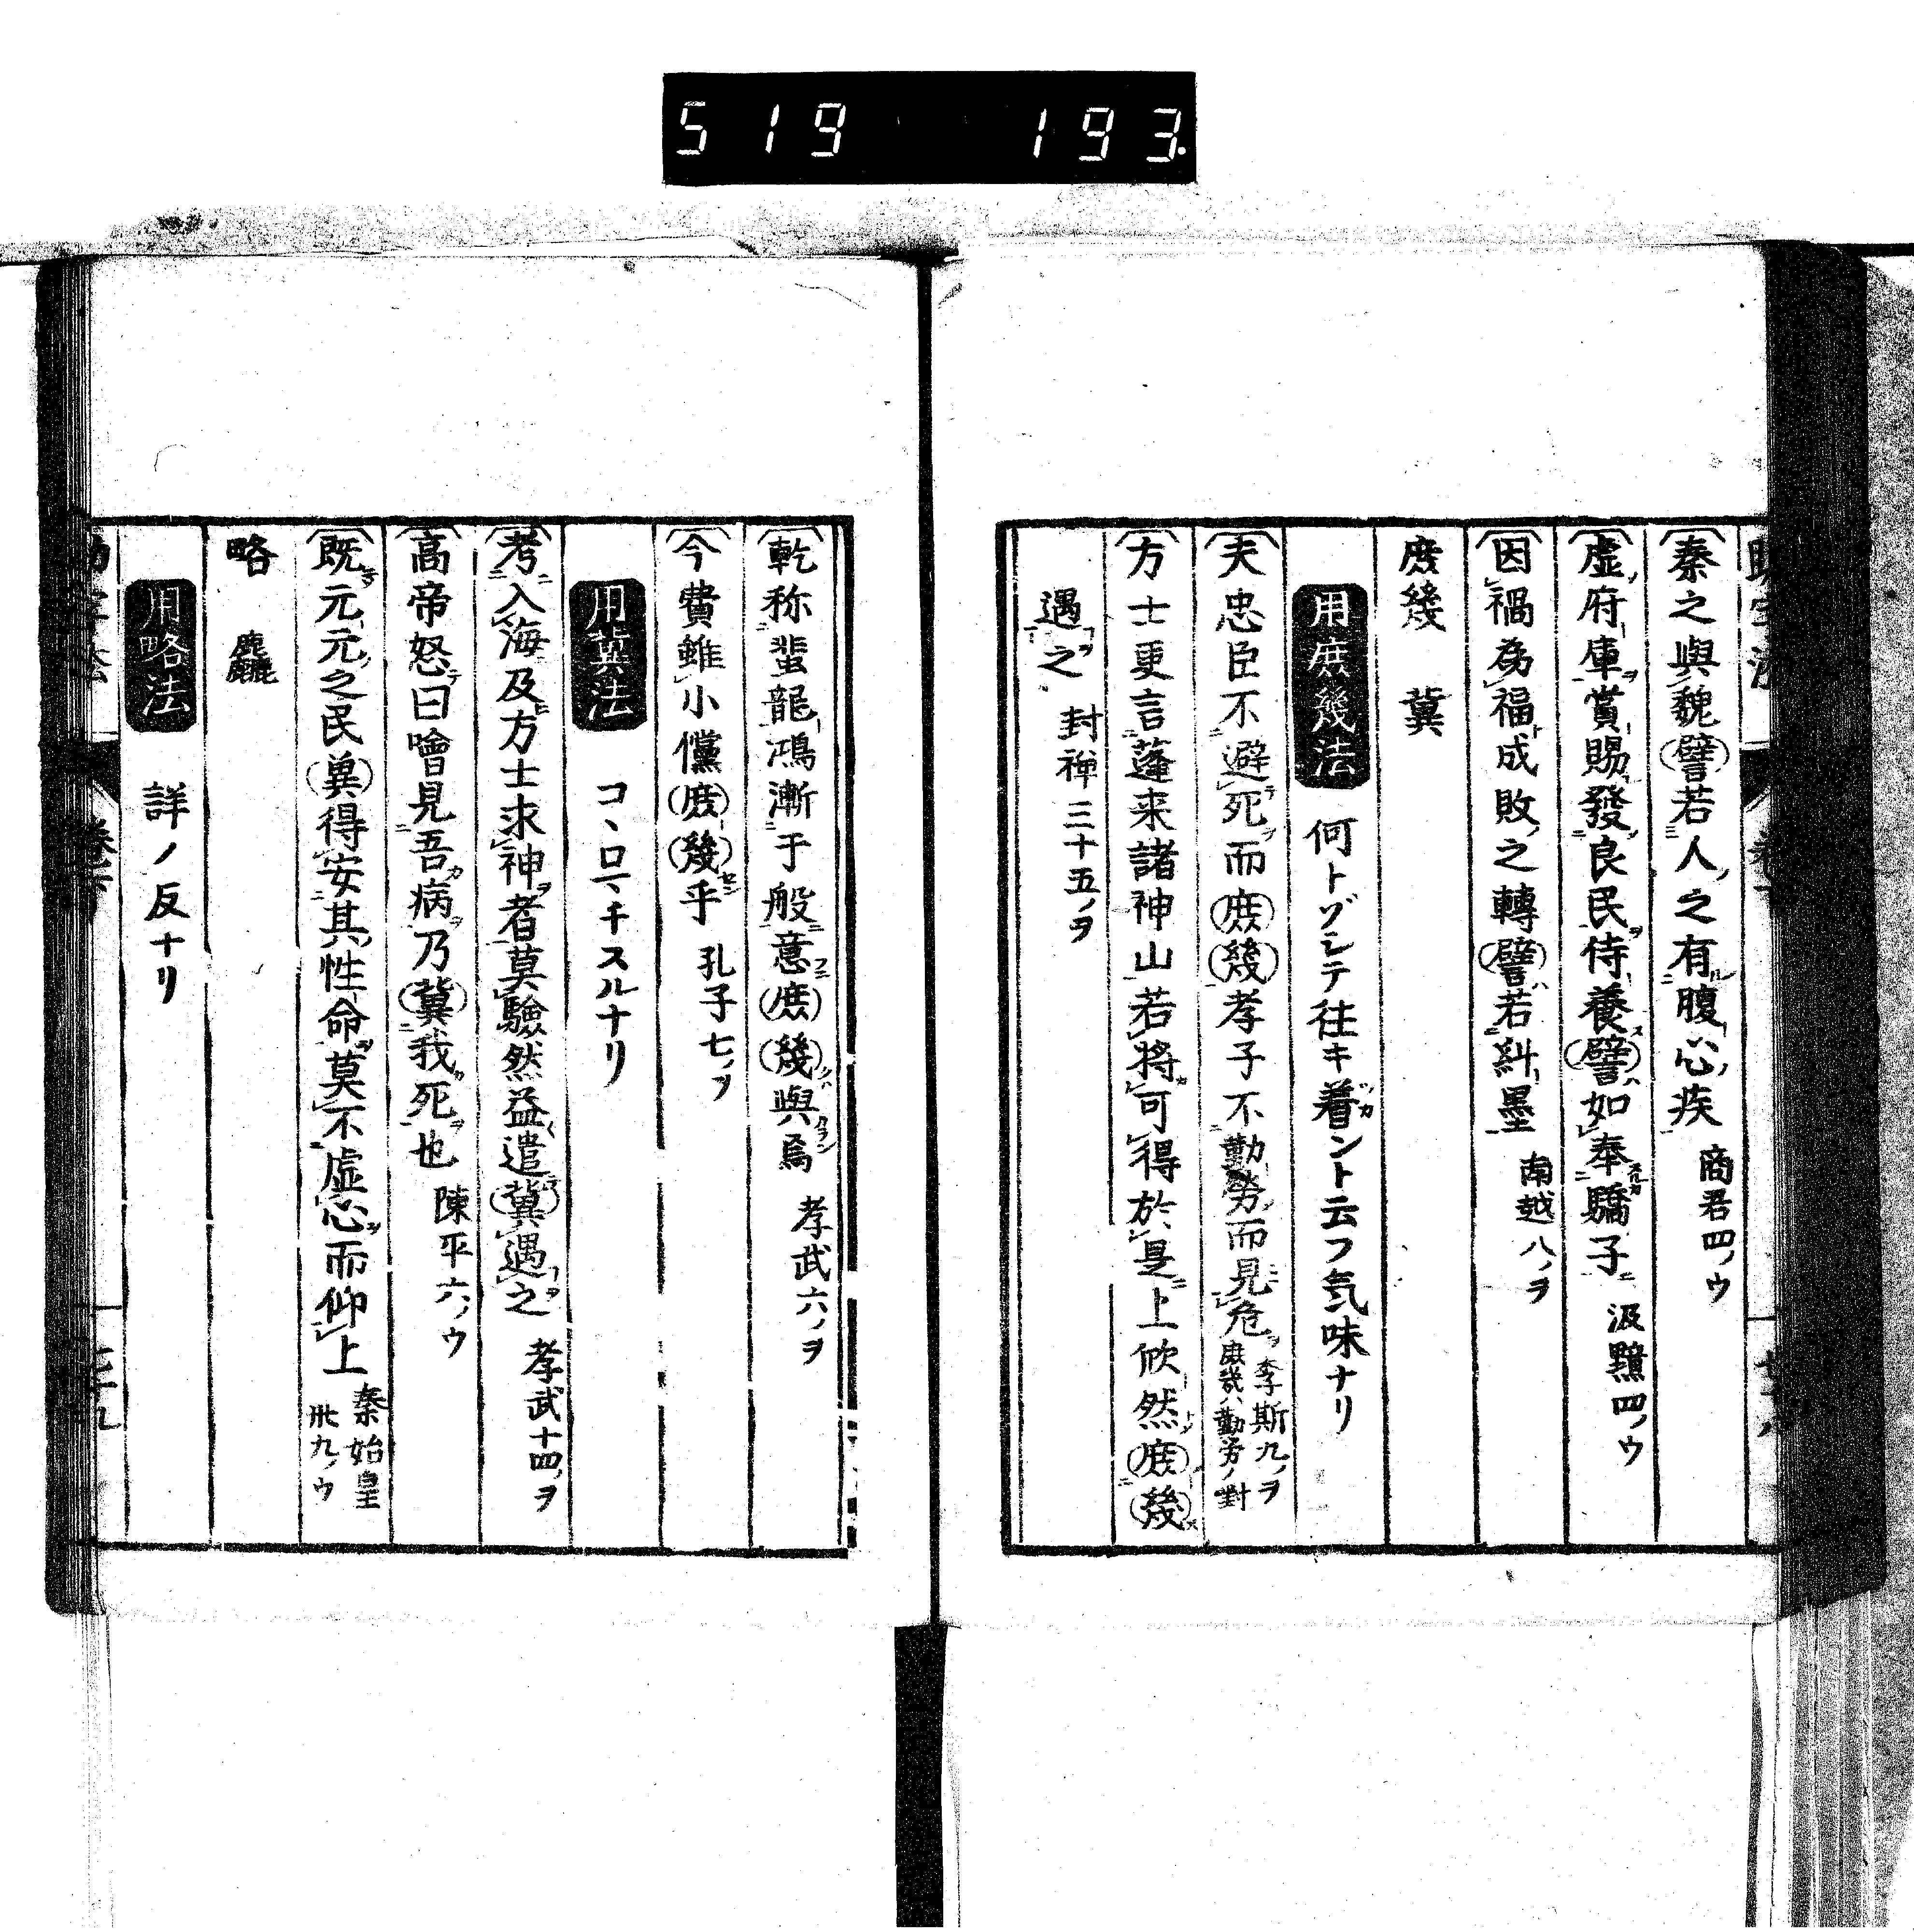 519 193.
秦之與魏譬若人之有腹心疾 商君四ノウ
虚府庫賞賜發良民侍養譬如奉驕子 汲黯四ノウ
因禍為福成敗之轉譬若糾墨 南越八ノヲ
庻幾 冀
用庻幾法 何トゾシテ往キ着ント云フ気味ナリ
夫忠臣不避死而庻幾孝子不勤勞而見危 李斯九ノヲ 庻幾ハ勤労ノ對
方士更言蓬来諸神山若將可得於是上欣然庻幾
遇之 封禅三十五ノヲ
乾称蜚龍鴻漸于般意庻幾與焉 孝武六ノヲ
今費雖小儻庻幾乎 孔子七ノヲ
用冀法 コヽロマチスルナリ
考入海及方士求神者莫驗然益遣冀遇之 孝武十四ノヲ
高帝怒曰噲見吾病乃冀我死也 陳平六ノウ
既元元之民冀得安其性命莫不虚心而仰上 秦始皇卅九ノウ
略 麤
用略法 詳ノ反ナリ